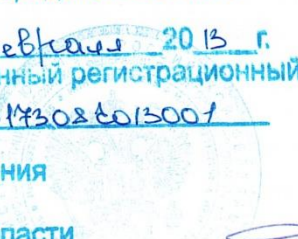 евраля 2013 г.
нный регистрационный
173082013001
ния
ласти